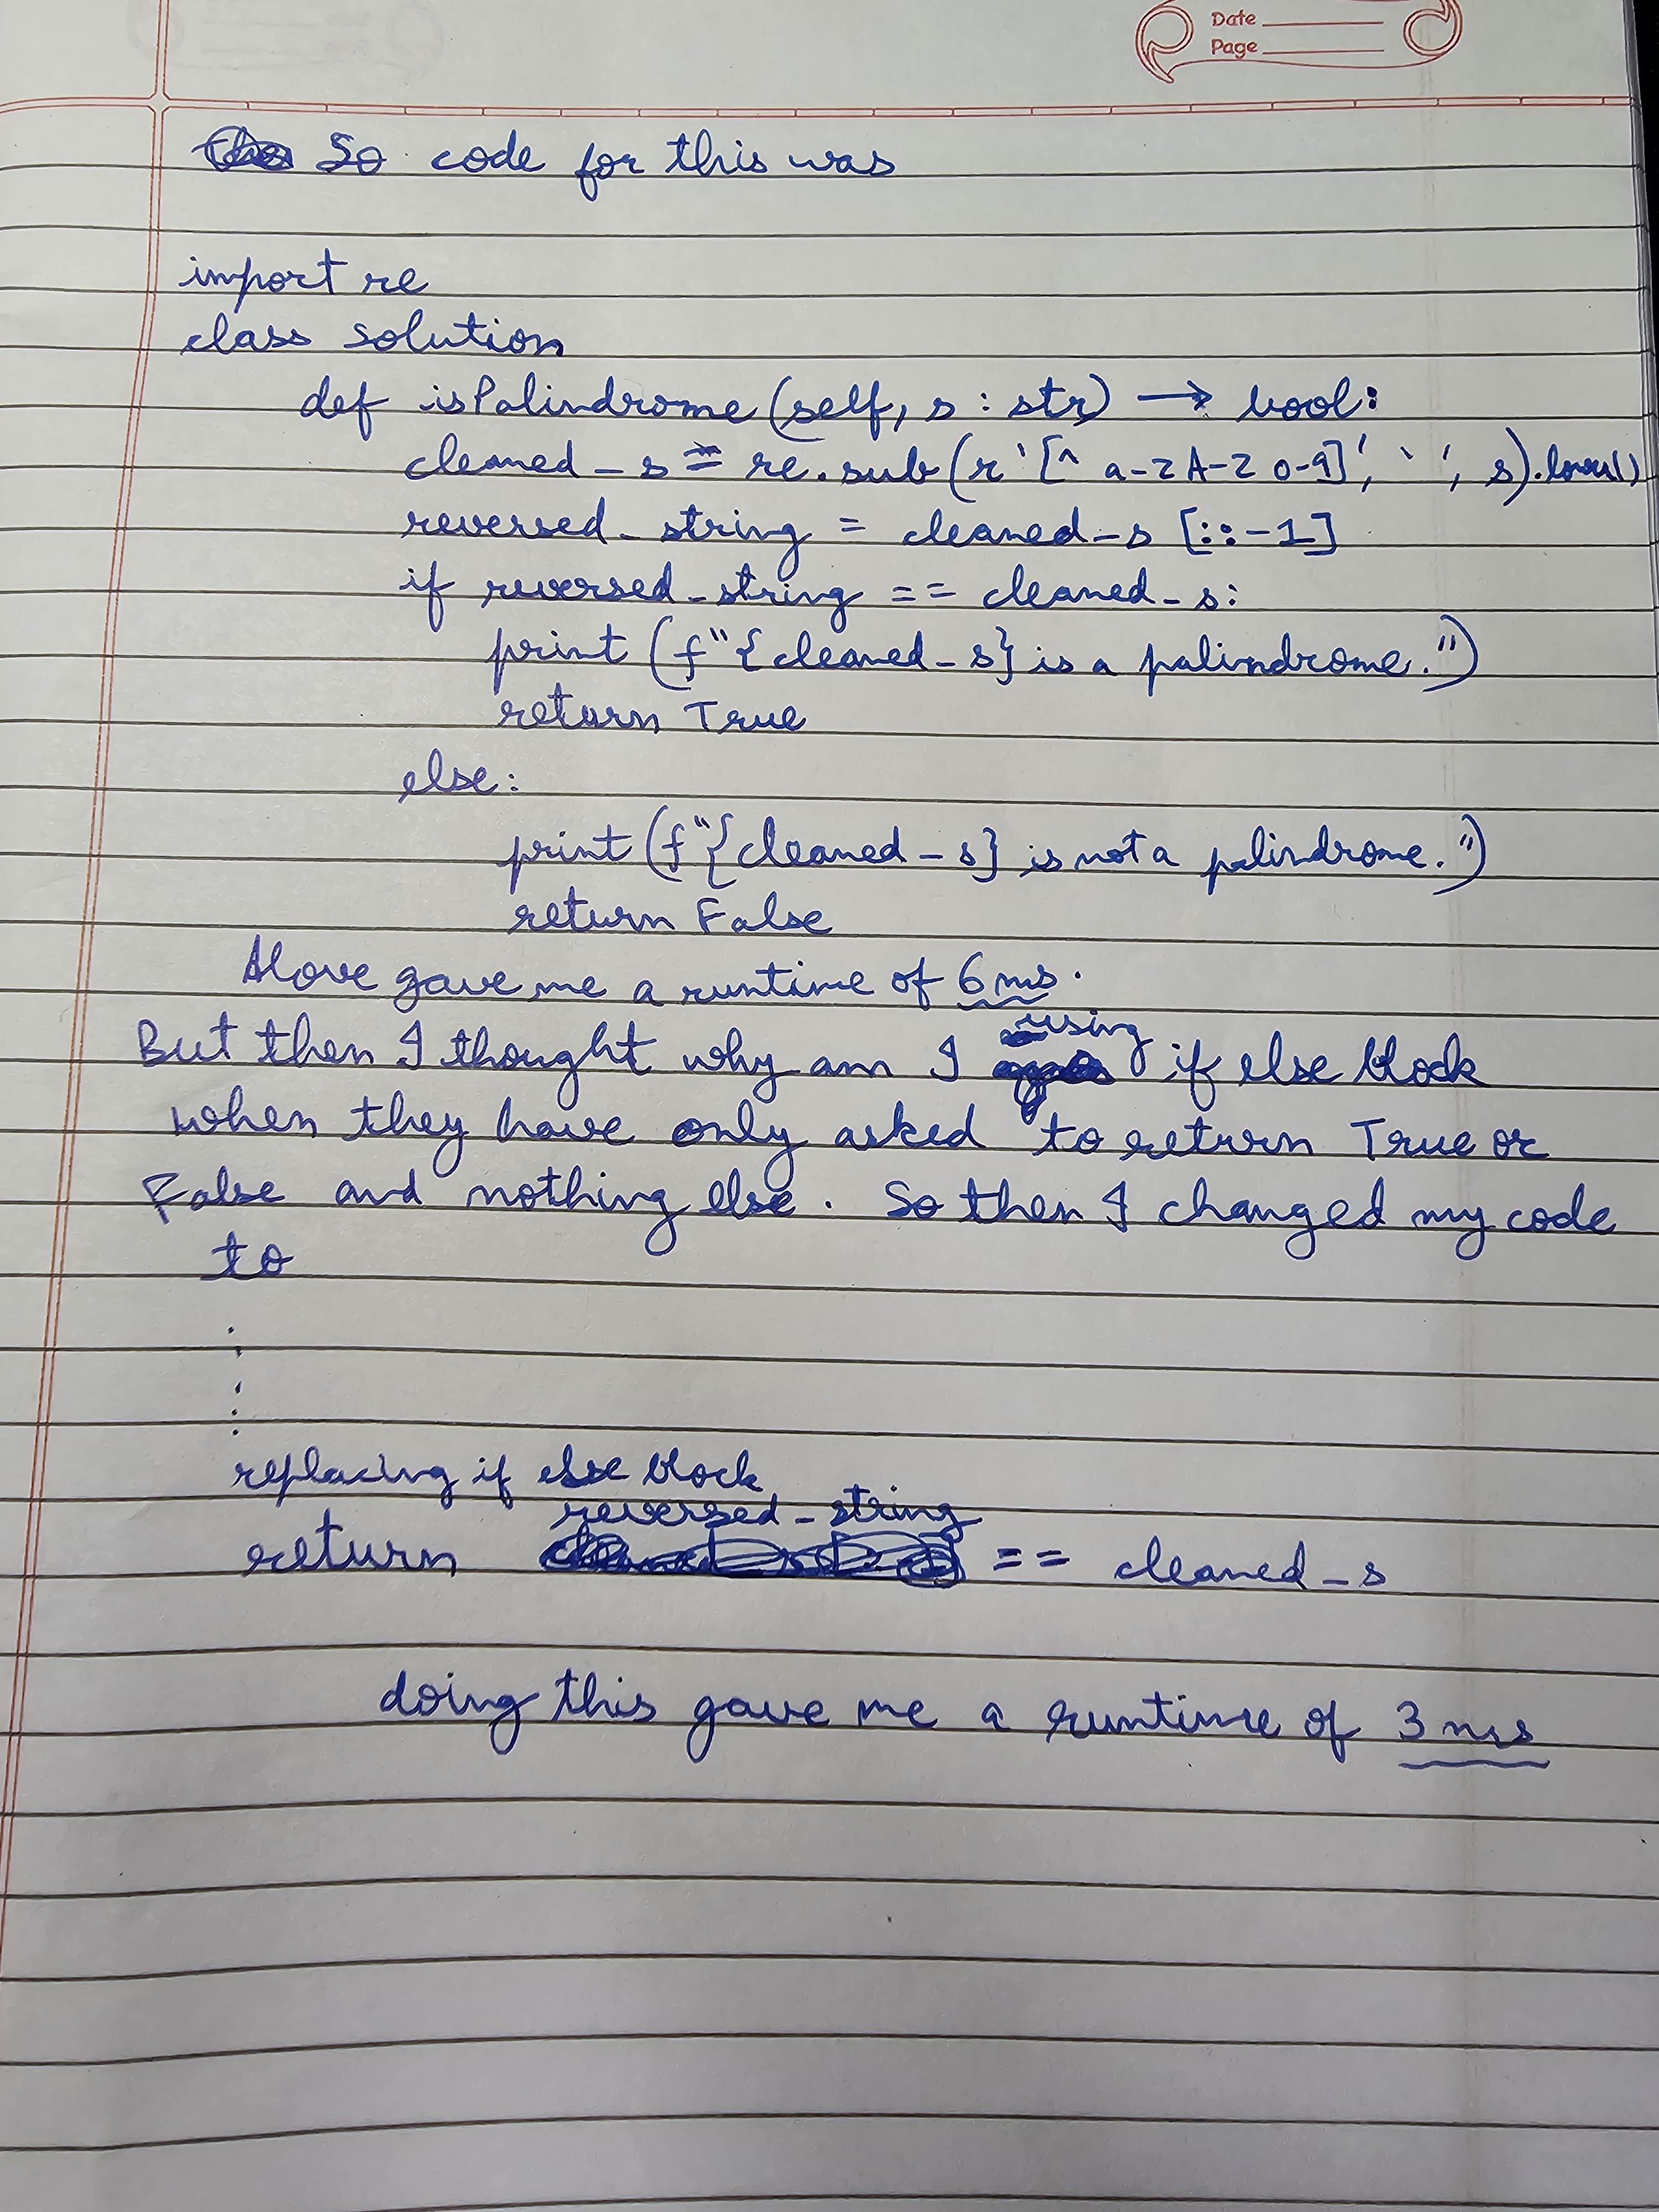 Date
Page
So code for this was
import re
class solution
def isPalindrome (self, s : str) → bool:
cleaned_s = re.sub(r'[^ a-z A-Z 0-9]', ' ', s).lower()
reversed_string = cleaned_s [::-1]
if reversed_string == cleaned_s:
print (f"{cleaned_s} is a palindrome.")
return True
else:
print (f"{cleaned_s} is not a palindrome.")
return False
Above gave me a runtime of 6 ms.
But then I thought why am I using if else block
when they have only asked to return True or
False and nothing else. So then I changed my code
to
replacing if else block
return reversed_string == cleaned_s
doing this gave me a runtime of 3 ms